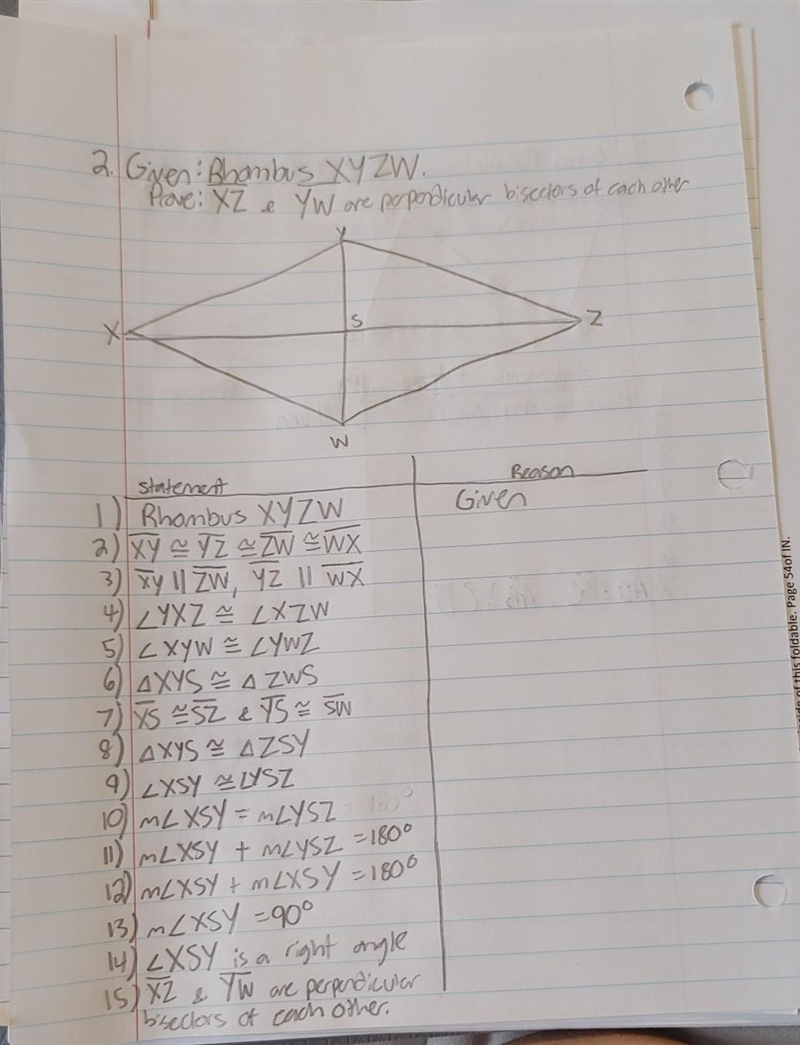 2. Given: Rhombus XYZW.
Prove: XZ & YW are perpendicular bisectors of each other
Y
X
S
Z
W
statement
Reason
1) Rhombus XYZW
Given
2) XY ≅ YZ ≅ ZW ≅ WX
3) XY || ZW, YZ || WX
4) ∠YXZ ≅ ∠XZW
5) ∠XYW ≅ ∠YWZ
6) △XYS ≅ △ZWS
7) YS ≅ SZ & YS ≅ SW
8) △XYS ≅ △ZSY
9) ∠XSY ≅ ∠YSZ
10) m∠XSY = m∠YSZ
11) m∠XSY + m∠YSZ = 180°
12) m∠XSY + m∠XSY = 180°
13) m∠XSY = 90°
14) ∠XSY is a right angle
15) XZ & YW are perpendicular
bisectors of each other.
of this foldable. Page 54of IN.